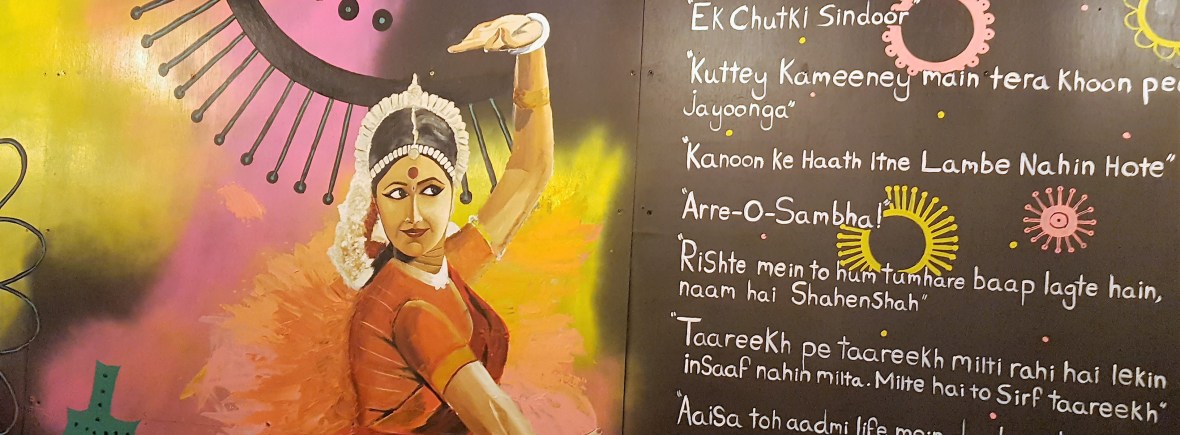 "Ek Chutki Sindoor"
"Kuttey Kameeney main tera Khoon pee
Jayoonga"
"Kanoon ke Haath Itne Lambe Nahin Hote"
"Arre-O-Sambha!"
"Rishte mein to hum tumhare baap lagte hain,
naam hai Shahenshah"
"Taareekh pe taareekh milti rahi hai lekin
insaaf nahin milta. Milte hai to Sirf taareekh"
"Aaisa toh aadmi life mein